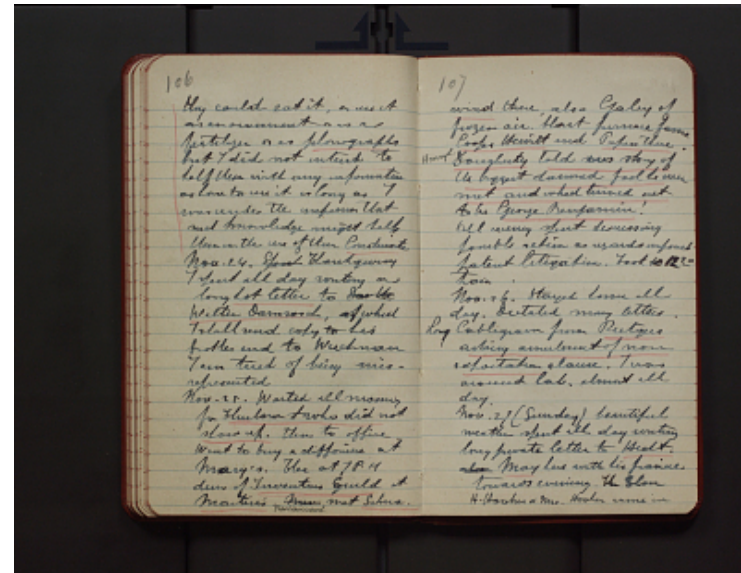 106
they could eat it, or use it
as an ornament or as a
fertilizer or as phonographs
but I did not intend to
help them with any information
as how to use it as long as I
was under the impression that
such knowledge might help
them in the use of their Condensite
Nov. 24.
I spent all day writing a
long hot letter to
Walter Damrosch, of which
I shall send copy to his
brother and to Wiechmann
I am tired of being mis-
represented
Nov. 25. Waited all morning
for Thurlow who did not
show up. Then to office
Went to buy a
at 7 P.M
dinner of Inventors Guild at
met
107
wind there, also Gayley of
frozen air blast furnace fame
Cooper Hewitt and Pupin there.
Daugherty told us story of
the biggest damned fool he ever
met and who turned out
to be George Benjamin!
All evening spent discussing
possible action as regards
patent litigation. Took 12
train.
Nov. 26. Stayed home all
day. Dictated many letters.
Long Cablegram from
asking annulment of non
exportation clause. I was
around lab. almost all
day.
Nov. 27 (Sunday) beautiful
weather spent all day writing
long private letter to
with his fiancee
towards evening.
came in